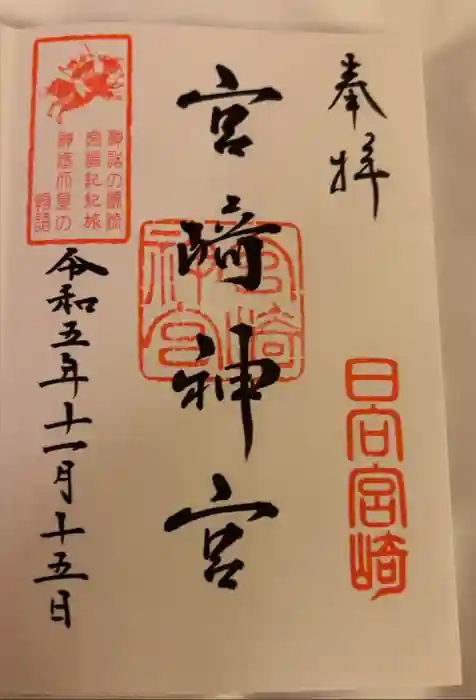 奉拝
日向宮崎
宮﨑神宮
宮崎
神宮
神話の源流
宮崎記紀旅
神武天皇の
物語
令和五年十一月十五日